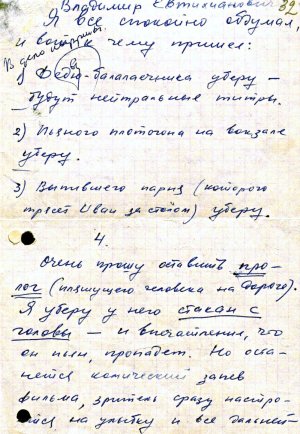 Владимир Евтихианович 39
Я всё спокойно обдумал,
и вот к чему пришел:
В дело картины.
1) Федю-балалаечника уберу —
будут нейтральные титры.
2) Пьяного плотогона на вокзале
уберу.
3) Выпившего парня (которого
трясет Иван за столом) уберу.
4.
Очень прошу оставить про-
лог (пляшущего человека на дороге).
Я уберу у него стакан с
головы — и впечатления, что
он пьян, пропадет. Но оста-
нется комический запев
фильма, зритель сразу настро-
ится на улыбку и все дальней-